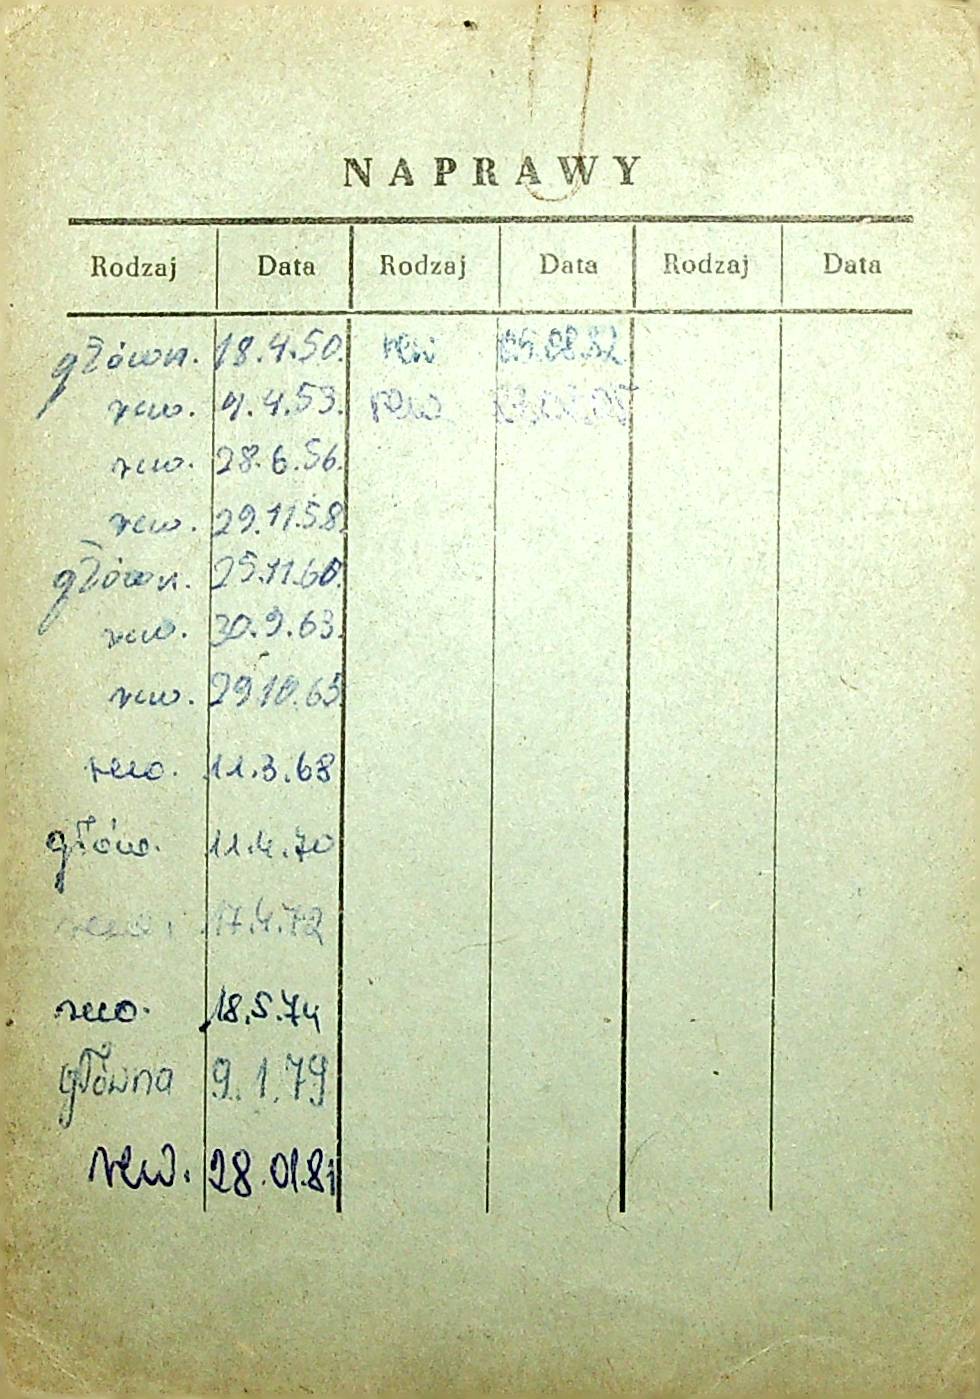 NAPRAWY
Rodzaj Data Rodzaj Data Rodzaj Data
główn. 18.4.50. rew
rew. 4.53. rew
rew. 28.6.56.
rew. 29.11.58.
główn. 25.11.60.
rew. 30.9.63.
rew. 29.10.65.
rew. 11.3.68
głów. 11.4.70
rew. 17.4.72
rew. 18.5.74
główna 9.1.79
rew. 28.01.81